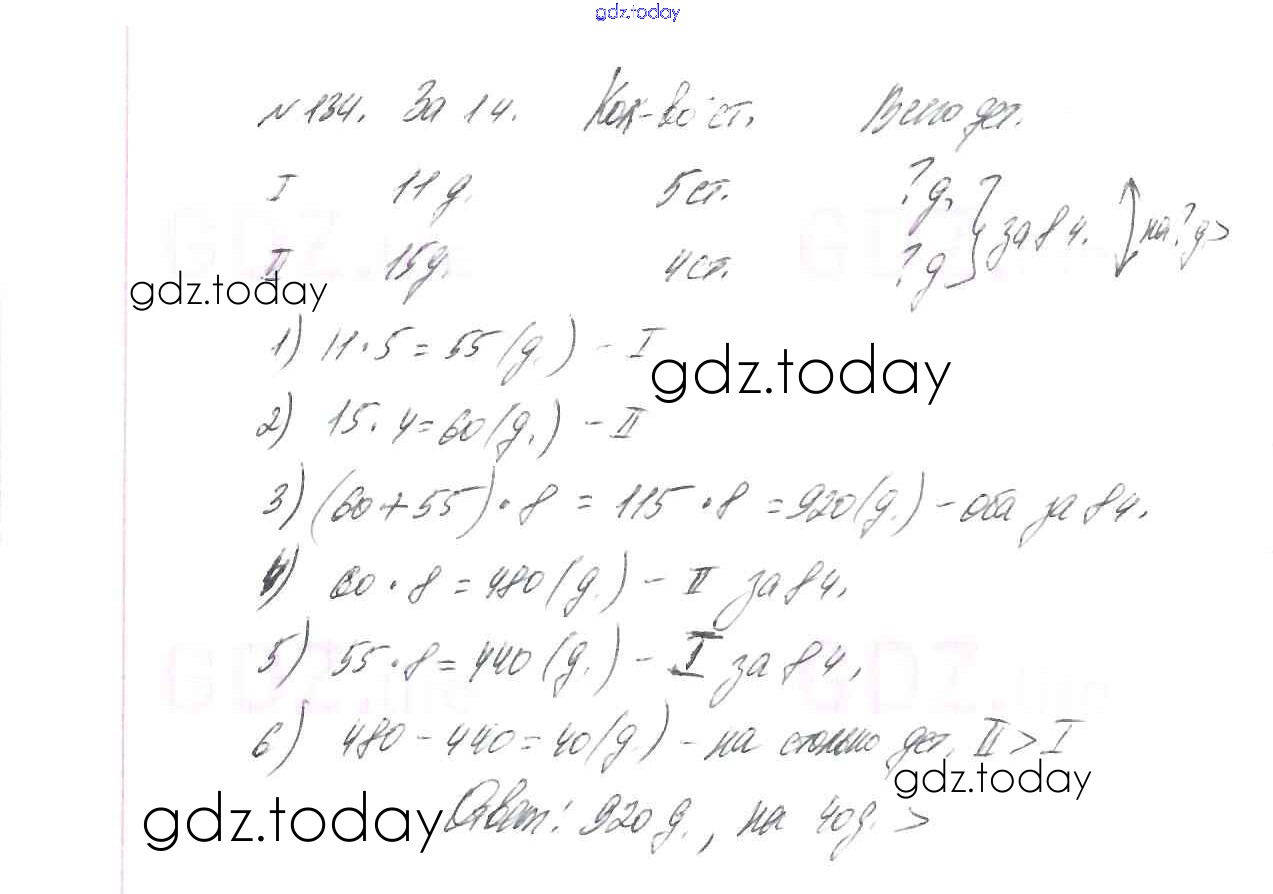 gdz.today
№134. За 1ч. Кол-во ст. Всего дет.
I 11 д. 5 ст. ? д. } за 8 ч. на ? д. >
II 15 д. 4 ст. ? д
gdz.today
1) 11 · 5 = 55 (д.) - I
gdz.today
2) 15 · 4 = 60 (д.) - II
3) (60 + 55) · 8 = 115 · 8 = 920 (д.) - оба за 8 ч.
4) 60 · 8 = 480 (д.) - II за 8 ч.
5) 55 · 8 = 440 (д.) - I за 8 ч.
GDZ.life GDZ.life
6) 480 - 440 = 40 (д.) - на столько дет. II > I
gdz.today
gdz.today
Ответ: 920 д., на 40 д. >